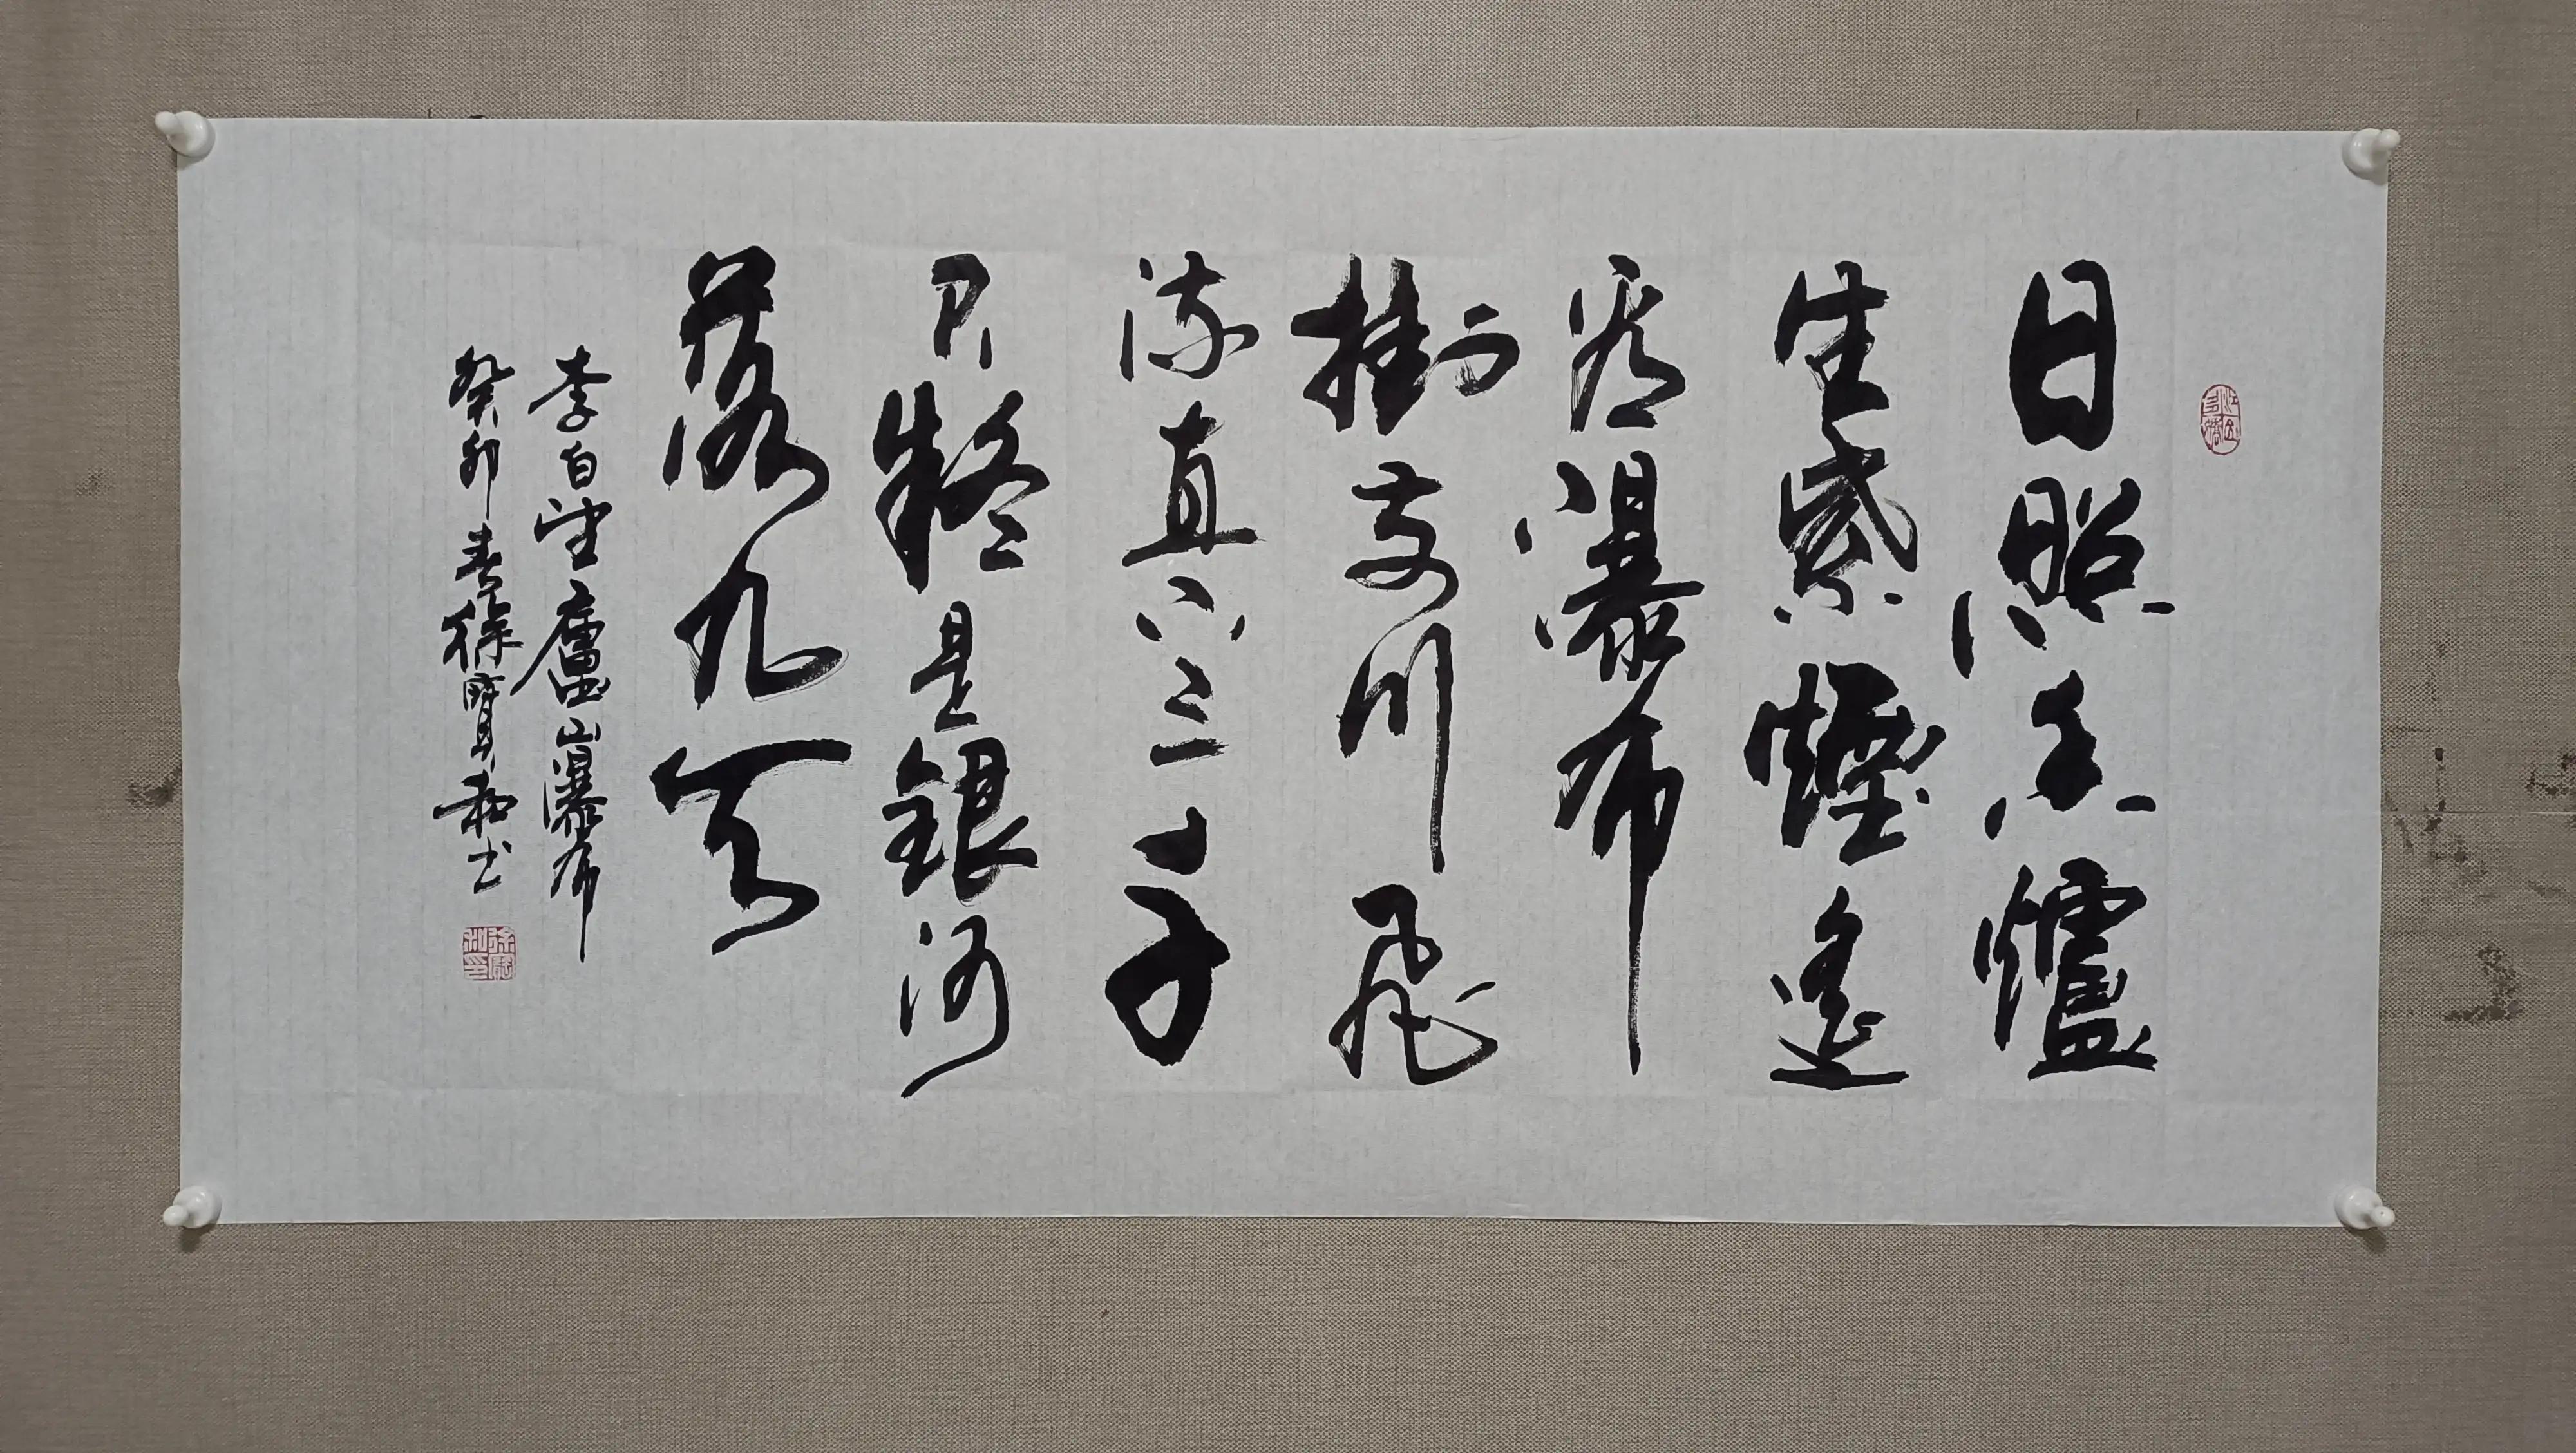 日照香爐
生紫煙遙
看瀑布
掛前川飛
流直下三千
尺疑是銀河
落九天
李白望廬山瀑布
癸卯春徐寶和书
徐寶和印